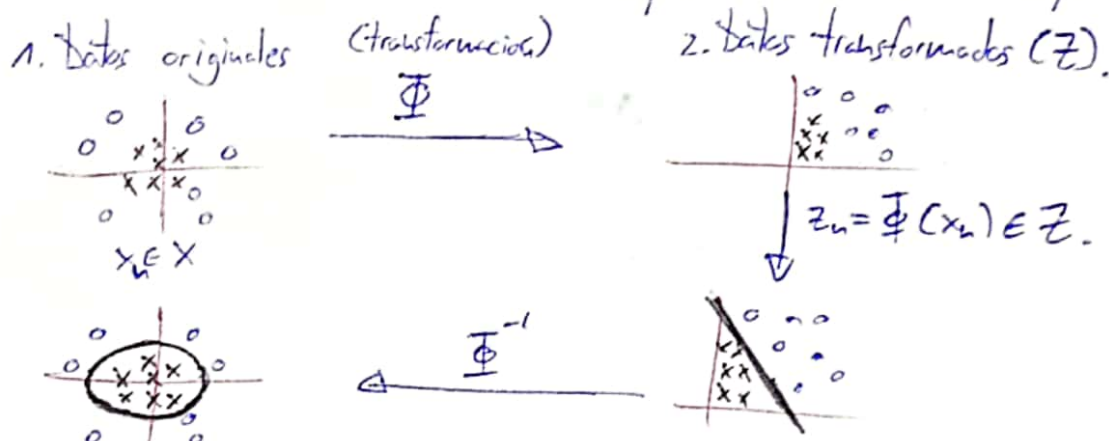 1. Datos originales
(transformación)
Φ
2. Datos transformados (Z).
xₙ ∈ X
zₙ = Φ(xₙ) ∈ Z.
Φ⁻¹